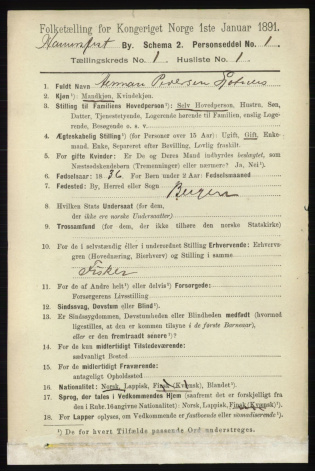 Folketælling for Kongeriget Norge 1ste Januar 1891.
Hammerfest By. Schema 2. Personseddel No. 1
Tællingskreds No. 1 Husliste No. 1.
1. Fuldt Navn Herman Pedersen
2. Kjøn¹) Mandkjøn, Kvindekjøn.
3. Stilling til Familiens Hovedperson¹): Selv Hovedperson, Hustru, Søn,
Datter, Tjenestetyende, Logerende hørende til Familien, enslig Loge-
rende, Besøgende o. s. v.
4. Ægteskabelig Stilling¹) (for Personer over 15 Aar): Ugift, Gift, Enke-
mand, Enke, Separeret efter Bevilling, Lovlig fraskilt.
5. For gifte Kvinder: Er De og Deres Mand indbyrdes beslægtet, som
Næstsødskendebørn (Tremenninger) eller nærmere? Ja, Nei¹).
6. Fødselsaar: 1836 For Børn under 2 Aar: Fødselsmaaned
7. Fødested: By, Herred eller Sogn Bergen
8. Hvilken Stats Undersaat (for dem,
der ikke ere norske Undersaatter)
9. Trossamfund (for dem, der ikke tilhøre den norske Statskirke)
10. For de i selvstændig eller i underordnet Stilling Erhvervende: Erhvervs-
gren (Hovednæring, Bierhverv) og Stilling i samme
Fisker
11. For de af Andre helt¹) eller delvis¹) Forsørgede:
Forsørgerens Livsstilling
12. Sindssvag, Døvstum eller Blind¹).
13. Er Sindssygdommen, Døvstumheden eller Blindheden medfødt (hvormed
ligestilles, at den er kommen tilsyne i de første Barneaar),
eller er den fremtraadt senere¹)?
14. For de kun midlertidigt Tilstedeværende:
sædvanligt Bosted
15. For de midlertidigt Fraværende:
antageligt Opholdssted
16. Nationalitet¹): Norsk, Lappisk, Finsk (Kvænsk), Blandet¹).
17. Sprog, der tales i Vedkommendes Hjem (saafremt det er forskjelligt fra
den i Rubr. 16 angivne Nationalitet): Norsk, Lappisk, Finsk (Kvænsk)¹).
18. For Lapper oplyses, om Vedkommende er fastboende eller nomadiserende¹).
¹) De for hvert Tilfælde passende Ord understreges.